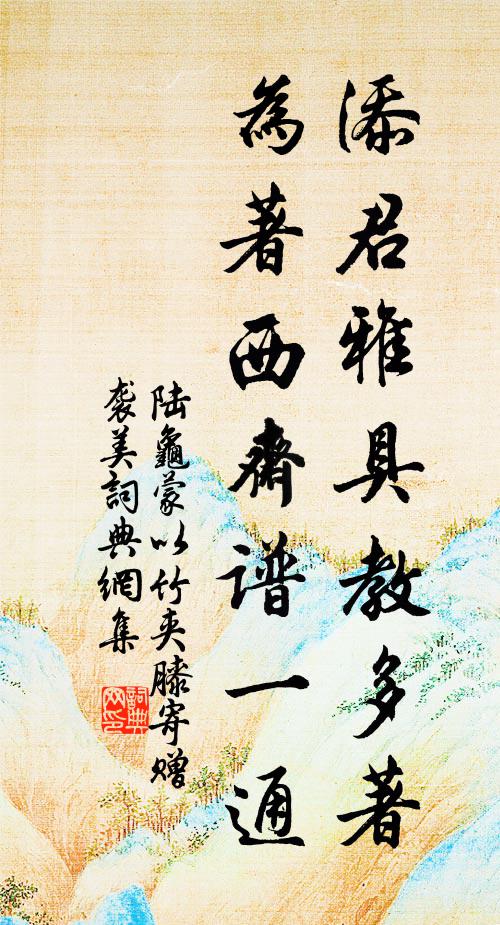 添君雅具教多著
為著西齋譜一通
陸龜蒙以竹夾膝寄贈
襲美詞典網集
詞典網印